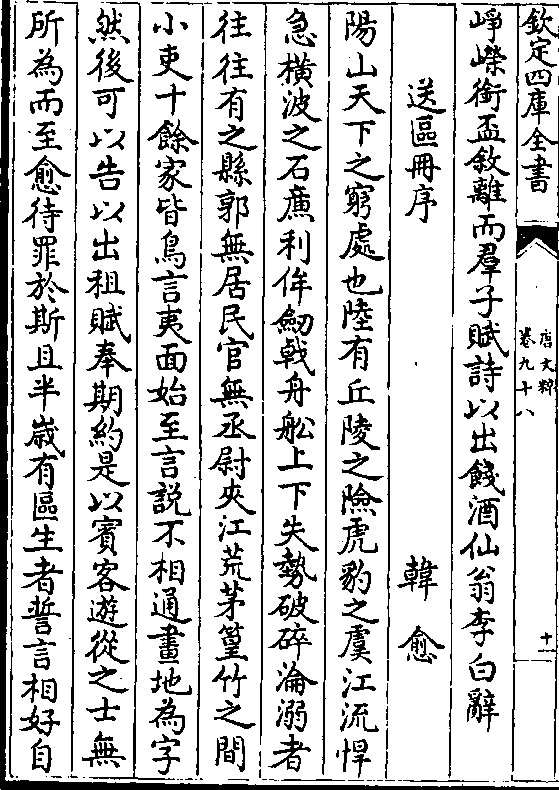 欽定四庫全書
唐文粹
卷九十八
十一
崢嶸銜盃敘離而羣子賦詩以出餞酒仙翁李白辭
送區冊序
韓愈
陽山天下之窮處也陸有丘陵之險虎豹之虞江流悍
急橫波之石㢘利侔劒戟舟舩上下失勢破碎淪溺者
往往有之縣郭無居民官無丞尉夾江荒茅篁竹之間
小吏十餘家皆鳥言夷面始至言説不相通畫地為字
然後可以告以出租賦奉期約是以賓客遊從之士無
所為而至愈待罪於斯且半歲有區生者誓言相好自